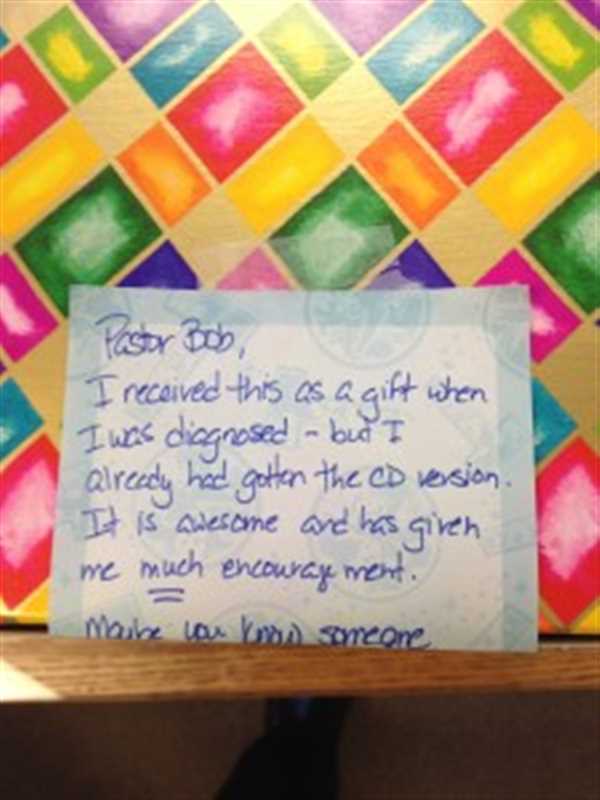 Pastor Bob,
I received this as a gift when
I was diagnosed - but I
already had gotten the CD version.
It is awesome and has given
me much encouragement.
Maybe you know someone